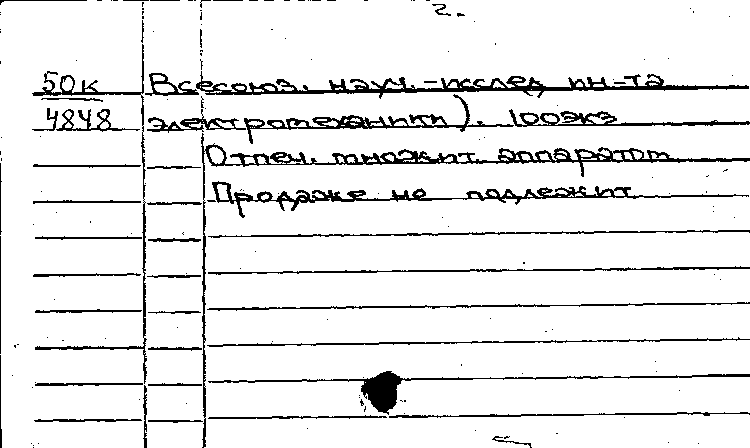 2.
50к Всесоюз. науч.-исслед ин-та
4848 электромеханики). 100экз
Отпеч. множит. аппаратом
Продаже не подлежит